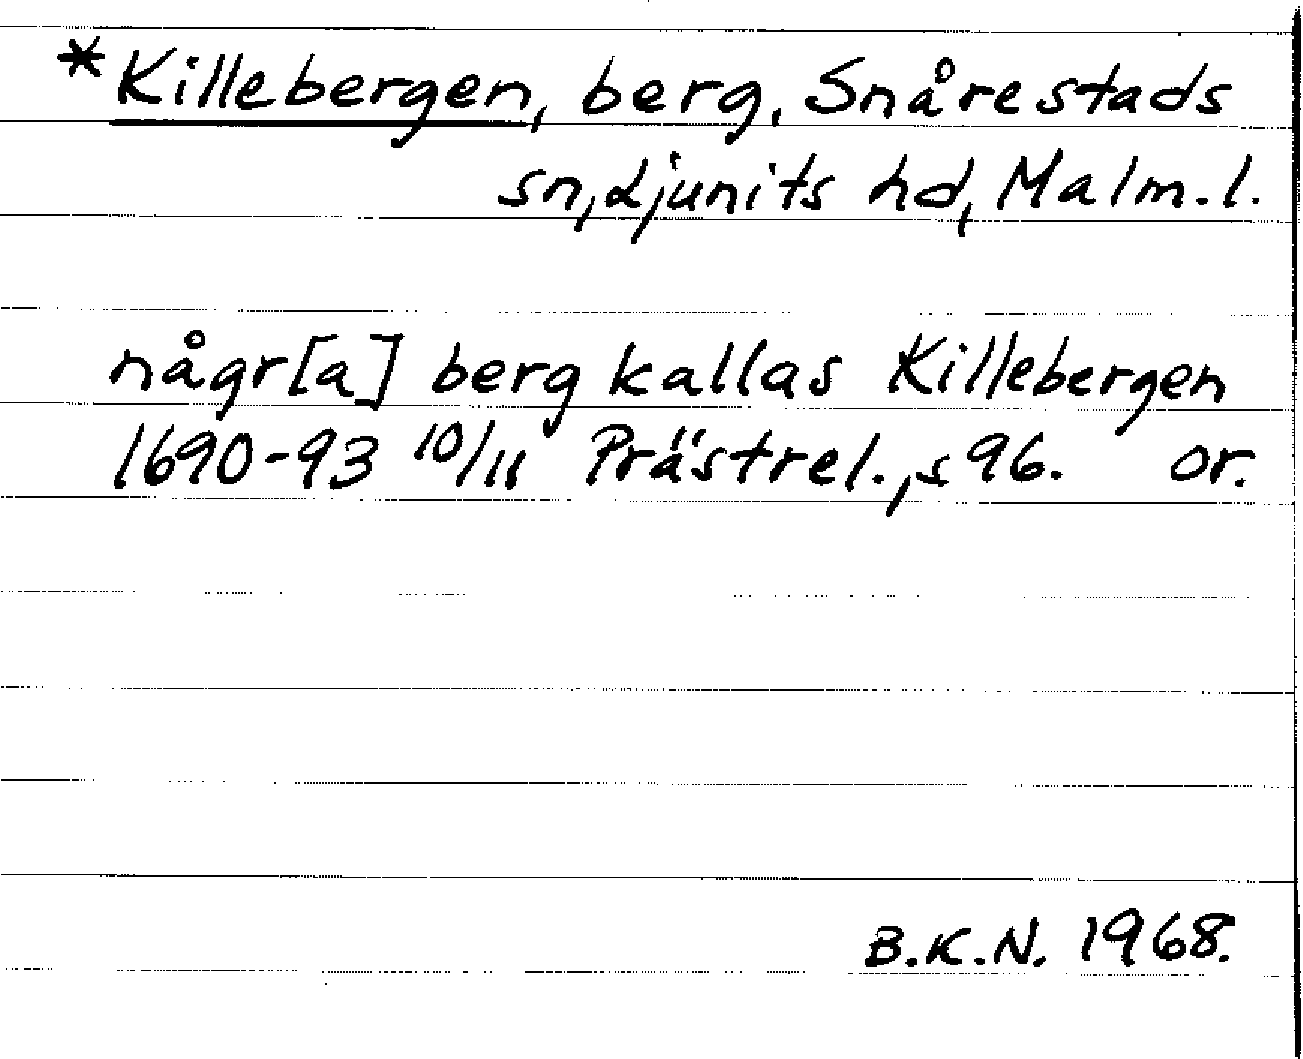 *Killebergen, berg, Snårestads
sn, Ljunits hd, Malm. l.
någr[a] berg kallas Killebergen
1690-93 10/11 Prästrel., s 96. or.
B.K.N. 1968.